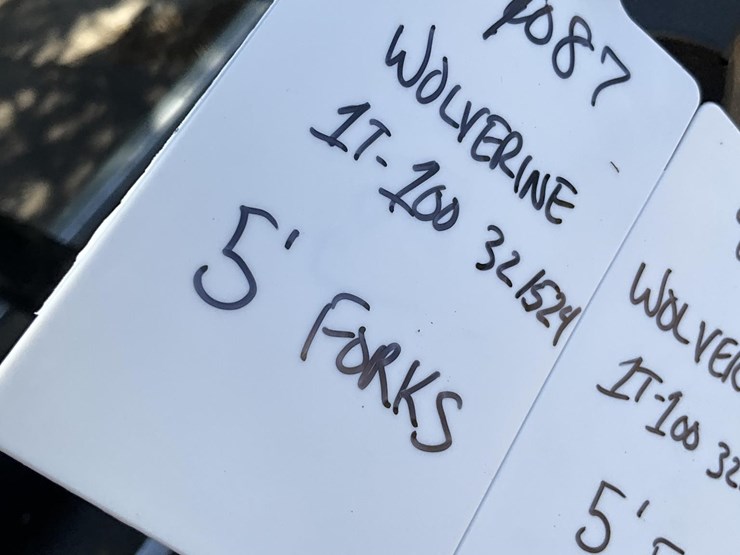 WOLVERINE
1T-100 321524
5' FORKS
WOLVE
1T-100 32
5'